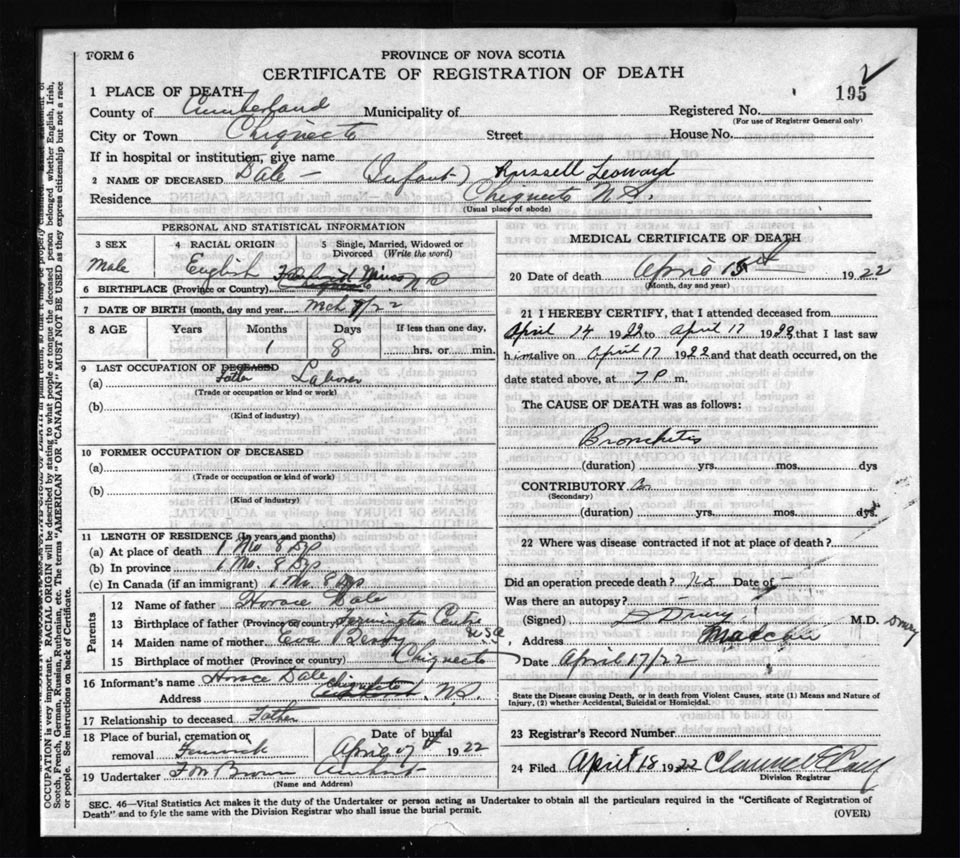 FORM 6
PROVINCE OF NOVA SCOTIA
CERTIFICATE OF REGISTRATION OF DEATH
195
1 PLACE OF DEATH—
County of Cumberland Municipality of Registered No.
(For use of Registrar General only)
City or Town Chignecto Street House No.
If in hospital or institution, give name
2 NAME OF DECEASED Dale — (Infant) Russell Leonard
Residence Chignecto N.S.
(Usual place of abode)
PERSONAL AND STATISTICAL INFORMATION
3 SEX 4 RACIAL ORIGIN 5 Single, Married, Widowed or Divorced (Write the word)
Male English
6 BIRTHPLACE (Province or Country) Chignecto Mines N S
7 DATE OF BIRTH (month, day and year) Mch 9/22
8 AGE Years Months Days If less than one day,
1 8 hrs. or min.
9 LAST OCCUPATION OF DECEASED
(a) Father Laborer
(Trade or occupation or kind or work)
(b)
(Kind of industry)
10 FORMER OCCUPATION OF DECEASED
(a)
(Trade or occupation or kind of work)
(b)
(Kind of industry)
11 LENGTH OF RESIDENCE (In years and months)
(a) At place of death 1 Mo 8 Dys
(b) In province 1 Mo. 8 Dys
(c) In Canada (if an immigrant) 1 Mo 8 Dys
Parents
12 Name of father Horace Dale
13 Birthplace of father (Province or country) Centre U.S.A
14 Maiden name of mother Eva
15 Birthplace of mother (Province or country) Chignecto
16 Informant's name Horace Dale
Address Chignecto N.S.
17 Relationship to deceased Father
18 Place of burial, cremation or removal Fenwick Date of burial April 1922
19 Undertaker F M Brown Amherst
(Name and Address)
MEDICAL CERTIFICATE OF DEATH
20 Date of death April 1922
(Month, day and year)
21 I HEREBY CERTIFY, that I attended deceased from
April 14 1922 to April 17 1922 that I last saw
him alive on April 17 1922 and that death occurred, on the
date stated above, at 7 P m.
The CAUSE OF DEATH was as follows:
Bronchitis
(duration) yrs. mos. dys
CONTRIBUTORY
(Secondary)
(duration) yrs. mos. dys.
22 Where was disease contracted if not at place of death?
Did an operation precede death? No Date of —
Was there an autopsy?
(Signed) D Drury M.D. Drury
Address Maccan
Date April 17/22
State the Disease causing Death, or in death from Violent Causes, state (1) Means and Nature of
Injury, (2) whether Accidental, Suicidal or Homicidal.
23 Registrar's Record Number
24 Filed April 18 1922 Clarence E
Division Registrar
SEC. 46—Vital Statistics Act makes it the duty of the Undertaker or person acting as Undertaker to obtain all the particulars required in the "Certificate of Registration of
Death" and to fyle the same with the Division Registrar who shall issue the burial permit.
(OVER)
OCCUPATION is very important. RACIAL ORIGIN will be described by stating to what people or tongue the deceased person belonged whether English, Irish,
Scotch, French, German, Russian, Ruthenian, etc. The terms "AMERICAN" OR "CANADIAN" MUST NOT BE USED as they express citizenship but not a race
or people. See instructions on back of Certificate.